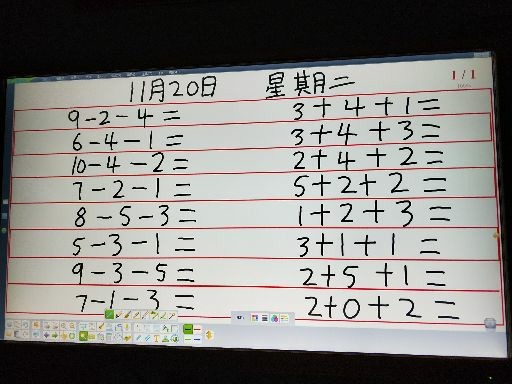 11月20日 星期二
1/1
9-2-4= 3+4+1=
6-4-1= 3+4+3=
10-4-2= 2+4+2=
7-2-1= 5+2+2=
8-5-3= 1+2+3=
5-3-1= 3+1+1=
9-3-5= 2+5+1=
7-1-3= 2+0+2=